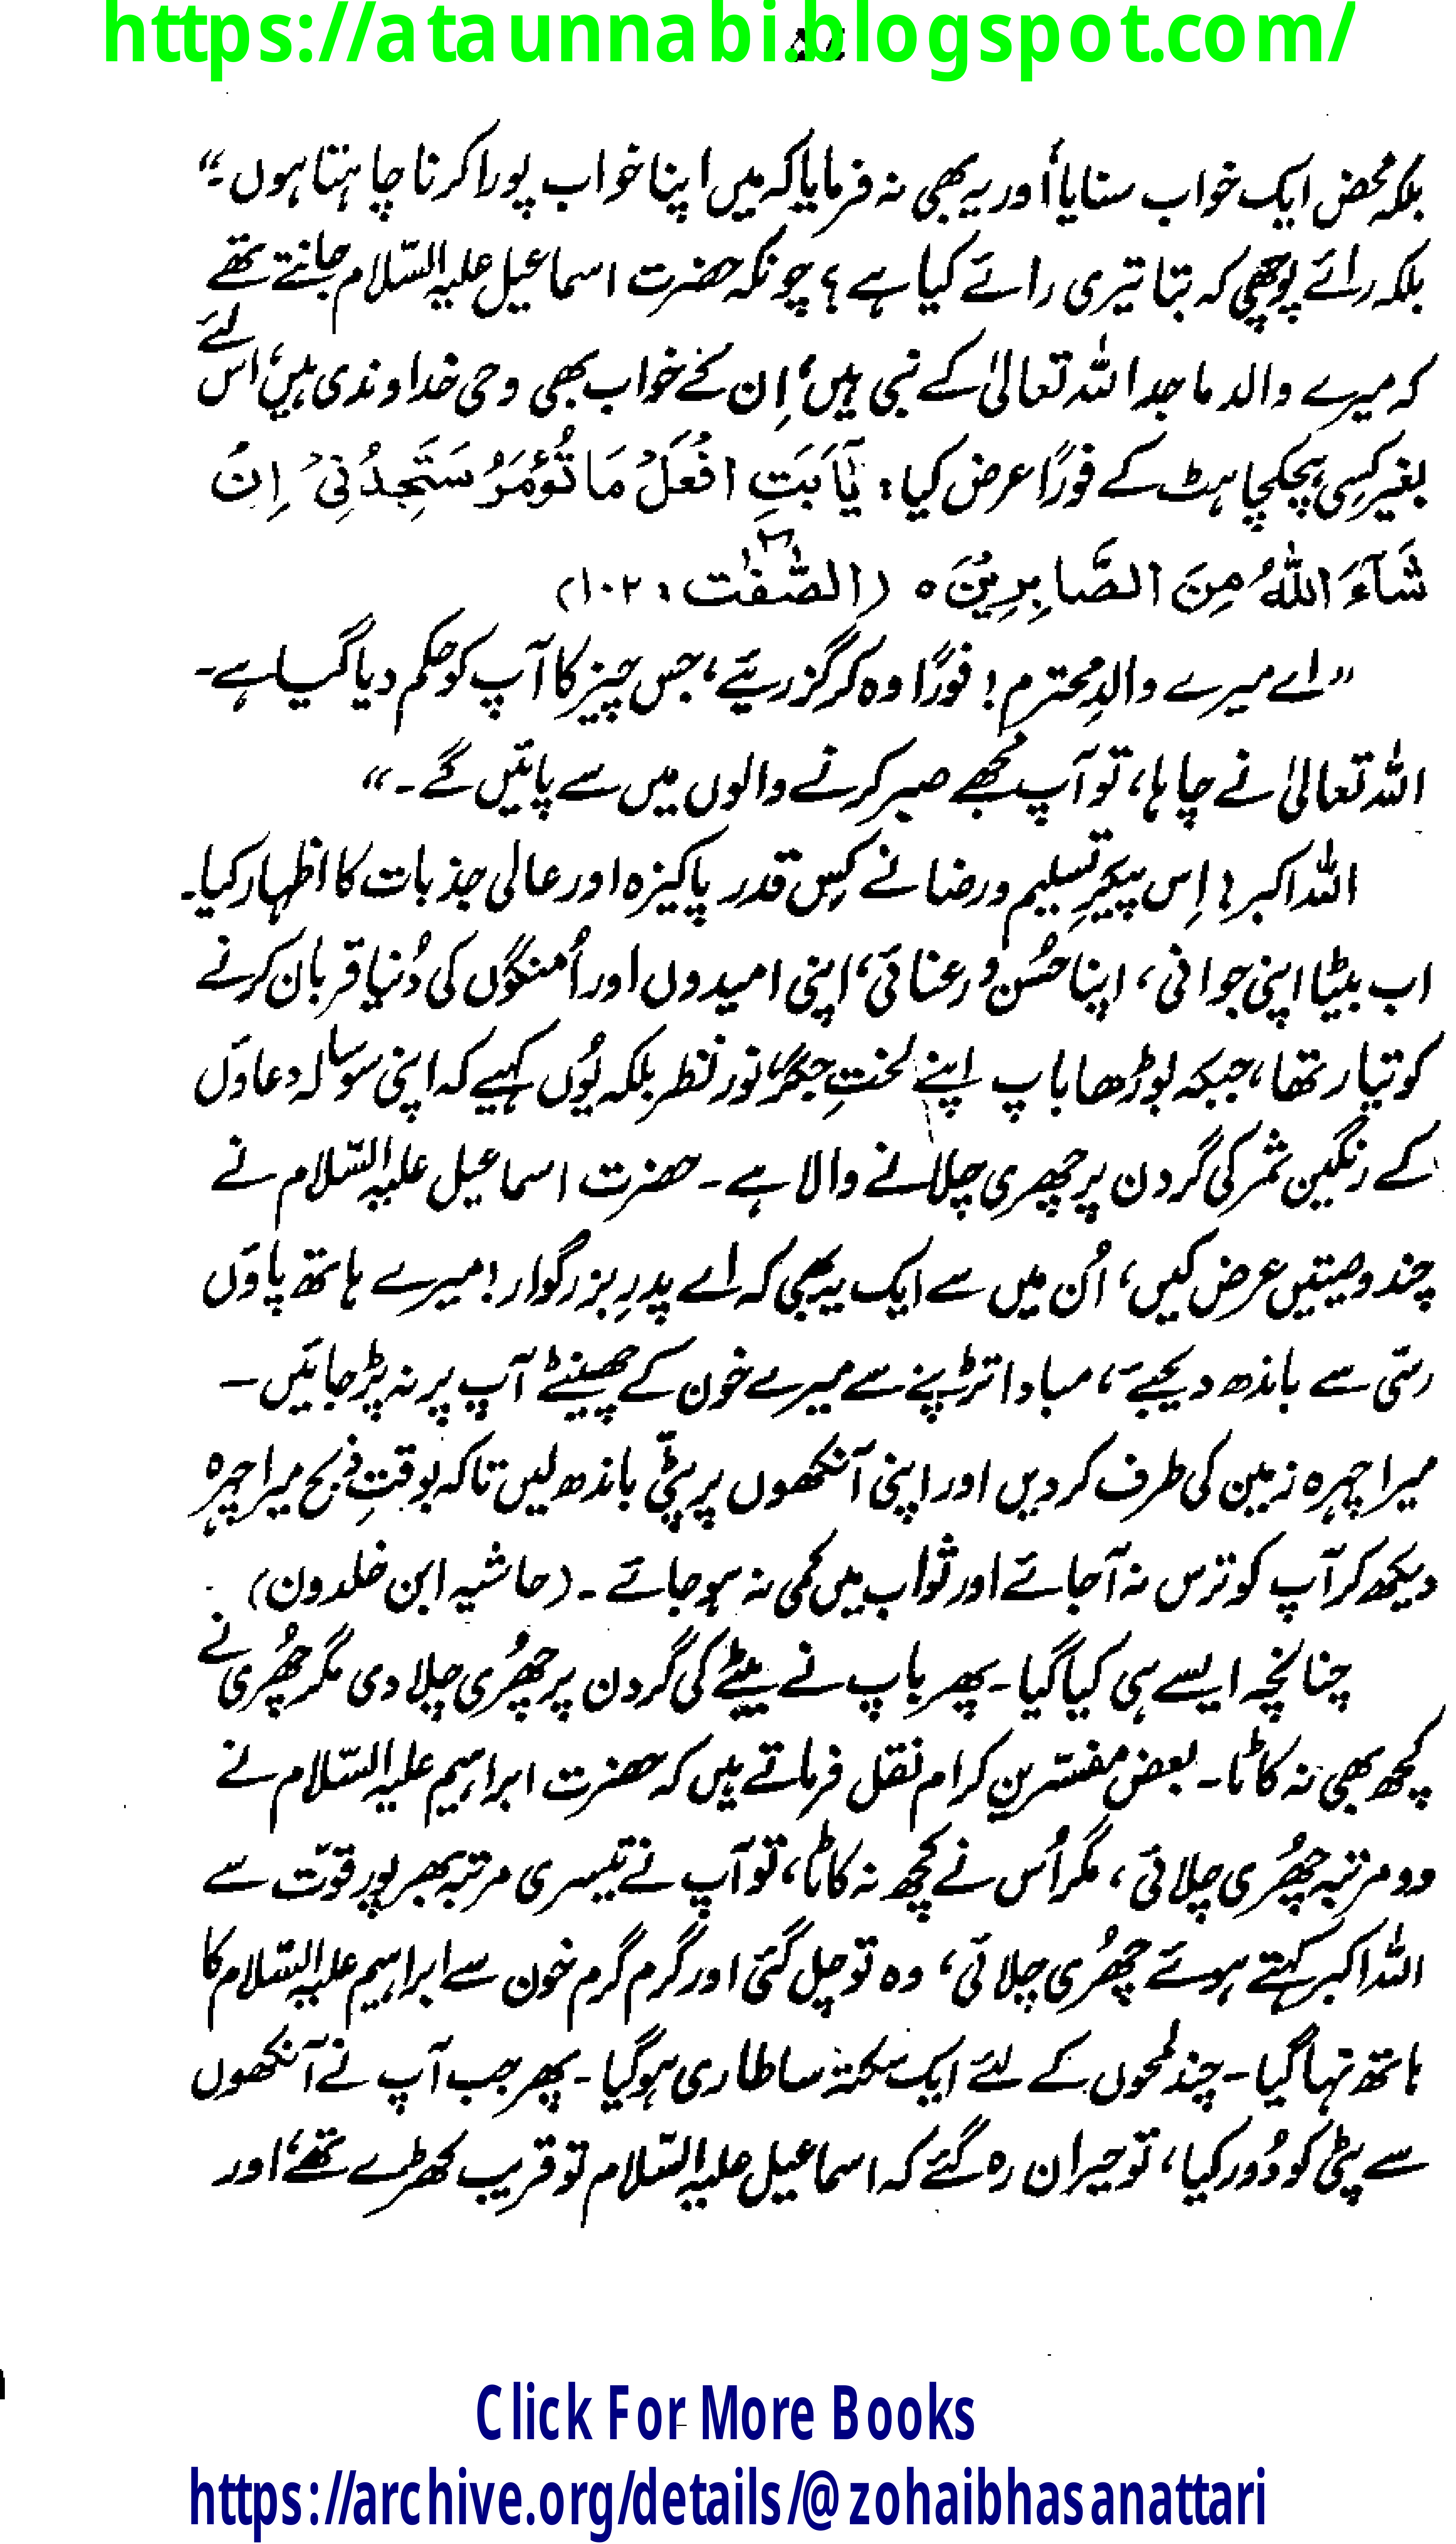 https://ataunnabi.blogspot.com/
بلکہ محض ایک خواب سنایا، اور یہ بھی نہ فرمایا کہ میں اپنا خواب پورا کرنا چاہتا ہوں۔"
بلکہ رائے پوچھی کہ بتا تیری رائے کیا ہے؟ چونکہ حضرت اسماعیل علیہ السّلام جانتے تھے
کہ میرے والد ماجد اللہ تعالیٰ کے نبی ہیں، اِن کے خواب بھی وحی خداوندی ہیں، اس لئے
بغیر کسی ہچکچاہٹ کے فورًا عرض کیا: یٰٓاَبَتِ افْعَلْ مَا تُؤْمَرُ سَتَجِدُنِیْ اِنْ
شَآءَ اللّٰهُ مِنَ الصَّابِرِیْنَ ہ (الصّٰفّٰت : ۱۰۲)
"اے میرے والدِ محترم! فورًا وہ کر گزریئے، جس چیز کا آپ کو حکم دیا گیا ہے۔
اللہ تعالیٰ نے چاہا، تو آپ مجھے صبر کرنے والوں میں سے پائیں گے۔"
اللہ اکبر! اِس پیکرِ تسلیم و رضا نے کس قدر پاکیزہ اور عالی جذبات کا اظہار کیا۔
اب بیٹا اپنی جوانی، اپنا حُسن و رعنائی، اپنی امیدوں اور اُمنگوں کی دُنیا قربان کرنے
کو تیار تھا، جبکہ بوڑھا باپ اپنے لختِ جگر، نورِ نظر بلکہ یُوں کہیے کہ اپنی سو سالہ دعاؤں
کے رنگین ثمر کی گردن پر چھری چلانے والا ہے۔ حضرت اسماعیل علیہ السّلام نے
چند وصیتیں عرض کیں، اُن میں سے ایک یہ تھی کہ اے پدرِ بزرگوار! میرے ہاتھ پاؤں
رسّی سے باندھ دیجیے، مبادا تڑپنے سے میرے خون کے چھینٹے آپ پر نہ پڑ جائیں —
میرا چہرہ زمین کی طرف کر دیں اور اپنی آنکھوں پر پٹّی باندھ لیں تاکہ بوقتِ ذبح میرا چہرہ
دیکھ کر آپ کو ترس نہ آجائے اور ثواب میں کمی نہ ہو جائے۔ (حاشیہ ابن خلدون)
چنانچہ ایسے ہی کیا گیا۔ پھر باپ نے بیٹے کی گردن پر چھُری چلا دی مگر چھُری نے
کچھ بھی نہ کاٹا۔ بعض مفسّرینِ کرام نقل فرماتے ہیں کہ حضرت ابراہیم علیہ السّلام نے
دو مرتبہ چھُری چلائی، مگر اُس نے کچھ نہ کاٹا، تو آپ نے تیسری مرتبہ بھر پور قوّت سے
اللہ اکبر کہتے ہوئے چھُری چلائی، وہ تو چل گئی اور گرم گرم خون سے ابراہیم علیہ السّلام کا
ہاتھ نہا گیا۔ چند لمحوں کے لئے ایک سکتہ سا طاری ہو گیا۔ پھر جب آپ نے آنکھوں
سے پٹی کو دُور کیا، تو حیران رہ گئے کہ اسماعیل علیہ السّلام تو قریب کھڑے تھے، اور
Click For More Books
https://archive.org/details/@zohaibhasanattari